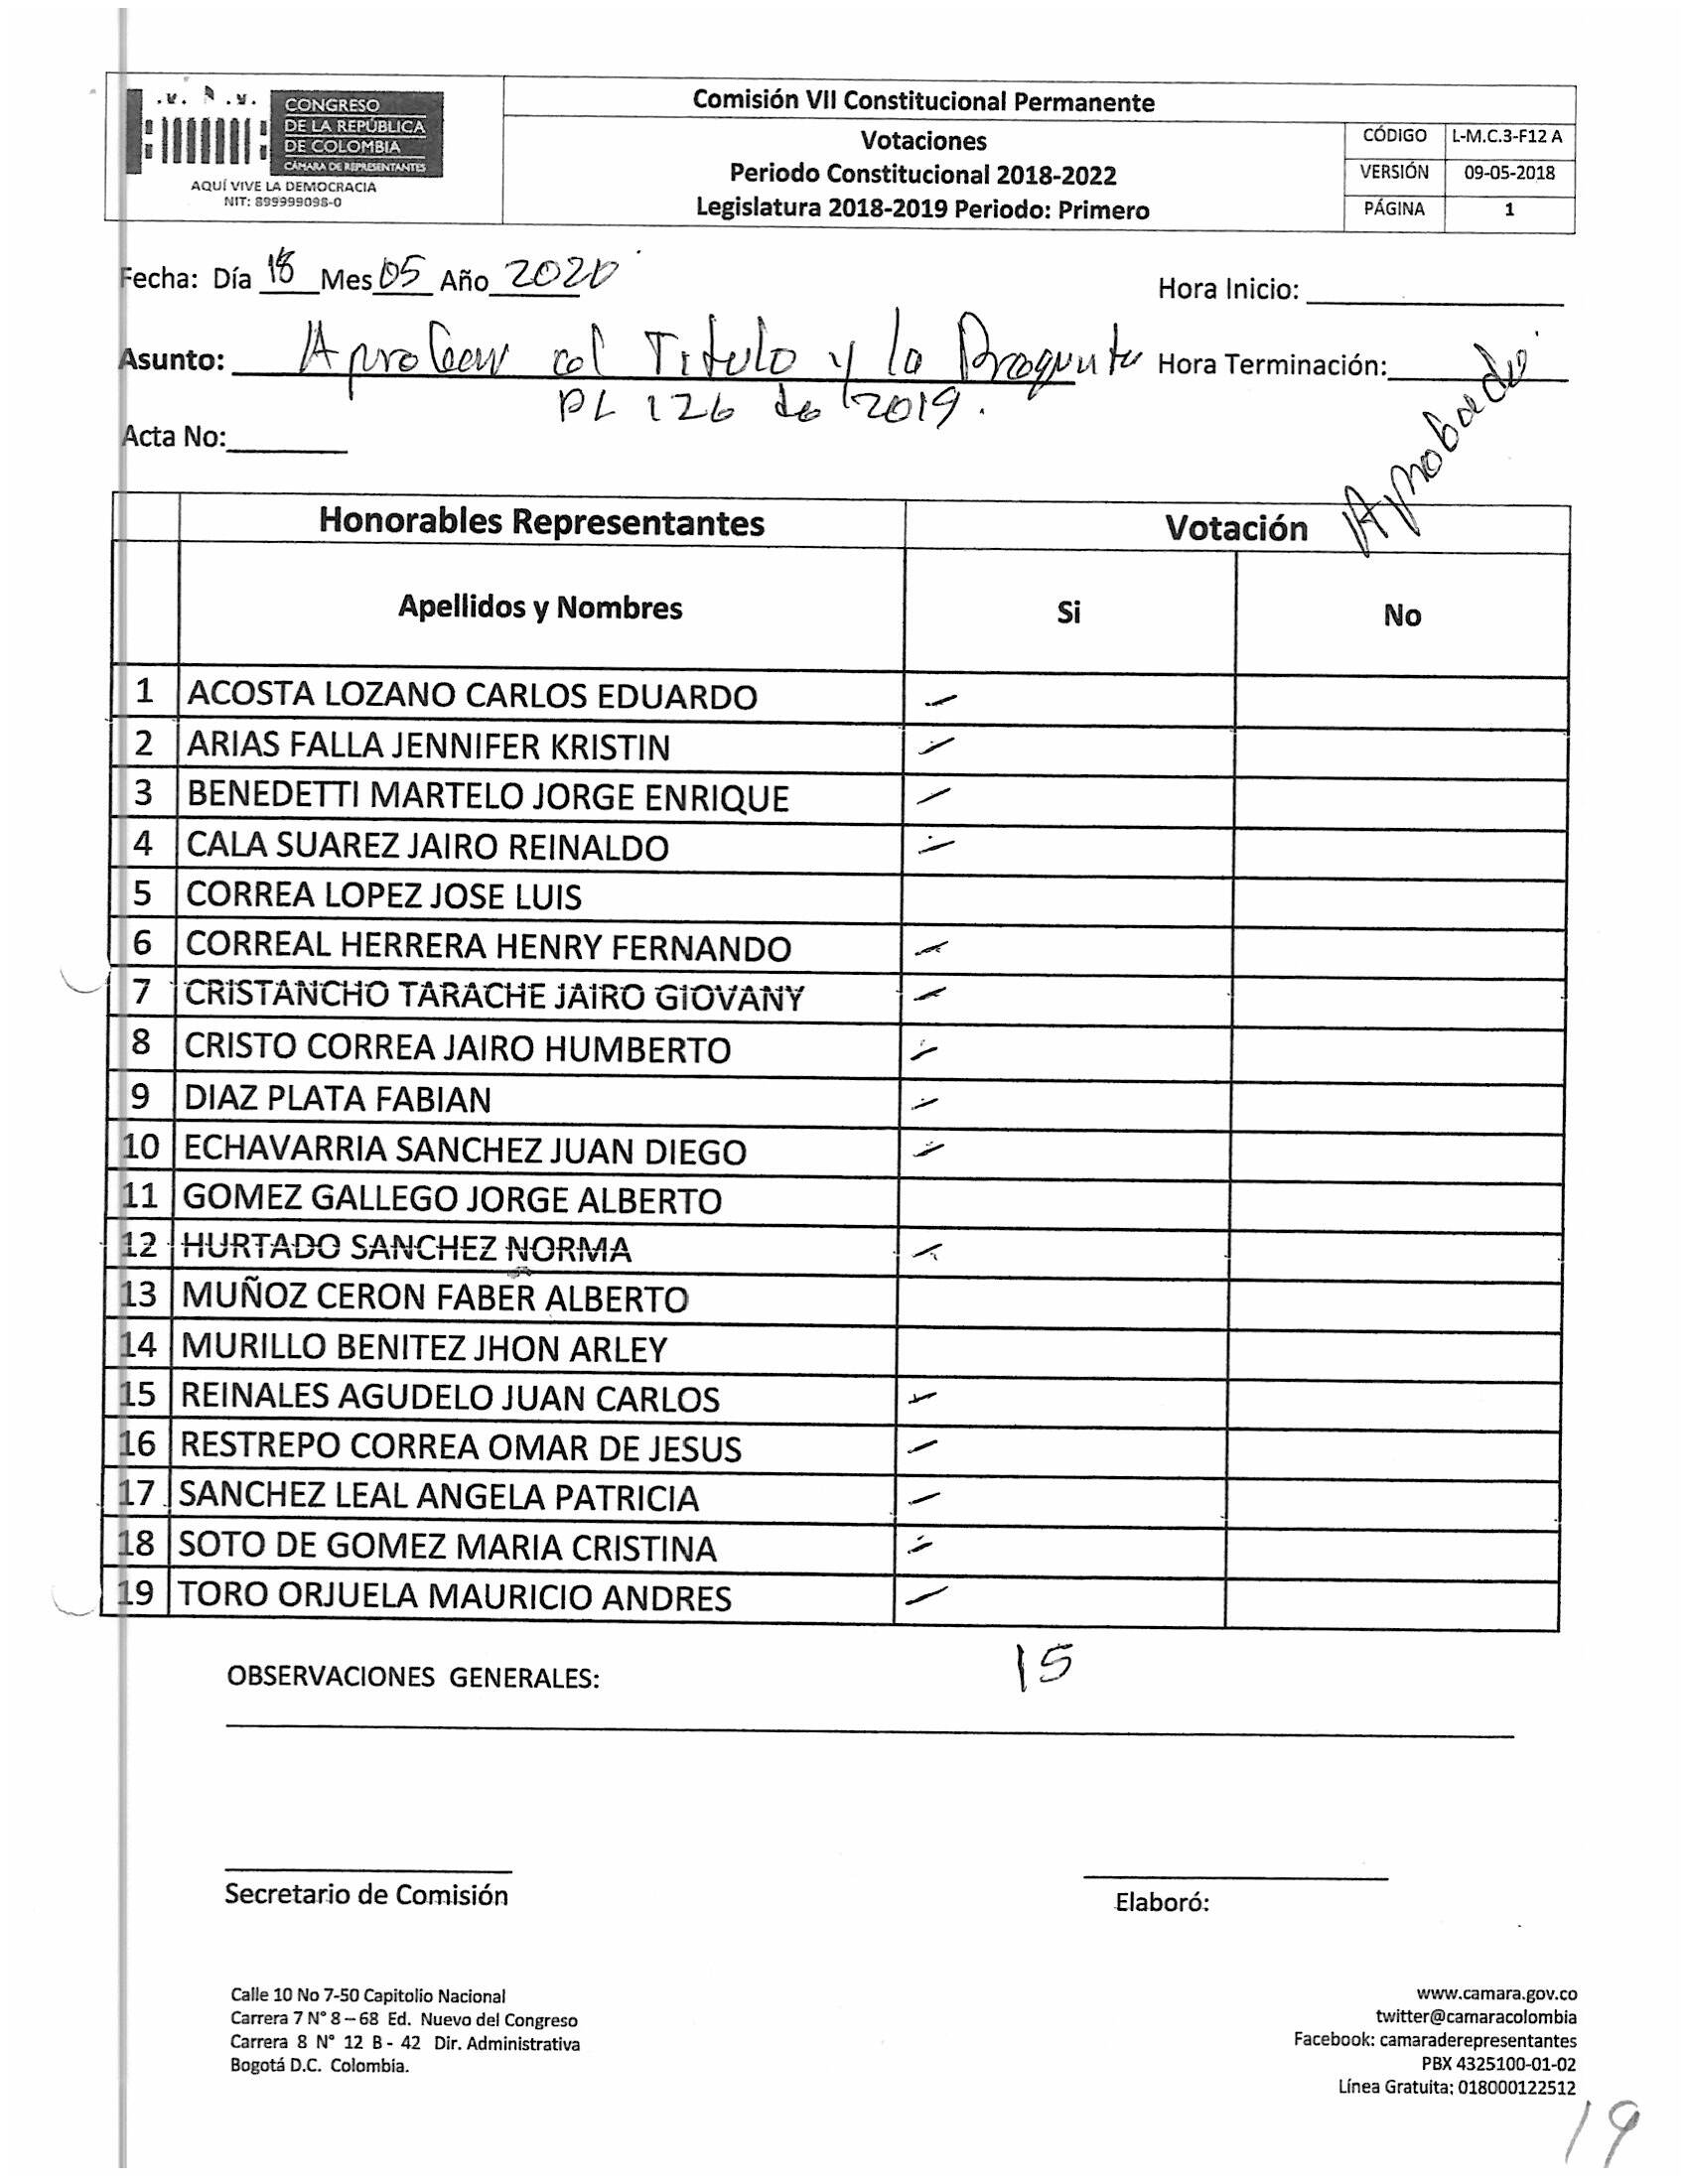 CONGRESO
DE LA REPÚBLICA
DE COLOMBIA
CÁMARA DE REPRESENTANTES
AQUÍ VIVE LA DEMOCRACIA
NIT: 899999098-0
Comisión VII Constitucional Permanente
Votaciones
Periodo Constitucional 2018-2022
Legislatura 2018-2019 Periodo: Primero
CÓDIGO L-M.C.3-F12 A
VERSIÓN 09-05-2018
PÁGINA 1
Fecha: Día 18 Mes 05 Año 2020
Hora Inicio:
Asunto: Titulo y la Pregunta
Hora Terminación:
PL 126 de 2019.
Acta No:
Aprobado
Honorables Representantes Votación
Apellidos y Nombres Si No
1 ACOSTA LOZANO CARLOS EDUARDO
2 ARIAS FALLA JENNIFER KRISTIN
3 BENEDETTI MARTELO JORGE ENRIQUE
4 CALA SUAREZ JAIRO REINALDO
5 CORREA LOPEZ JOSE LUIS
6 CORREAL HERRERA HENRY FERNANDO
7 CRISTANCHO TARACHE JAIRO GIOVANY
8 CRISTO CORREA JAIRO HUMBERTO
9 DIAZ PLATA FABIAN
10 ECHAVARRIA SANCHEZ JUAN DIEGO
11 GOMEZ GALLEGO JORGE ALBERTO
12 HURTADO SANCHEZ NORMA
13 MUÑOZ CERON FABER ALBERTO
14 MURILLO BENITEZ JHON ARLEY
15 REINALES AGUDELO JUAN CARLOS
16 RESTREPO CORREA OMAR DE JESUS
17 SANCHEZ LEAL ANGELA PATRICIA
18 SOTO DE GOMEZ MARIA CRISTINA
19 TORO ORJUELA MAURICIO ANDRES
15
OBSERVACIONES GENERALES:
Secretario de Comisión
Elaboró:
Calle 10 No 7-50 Capitolio Nacional
Carrera 7 N° 8 – 68 Ed. Nuevo del Congreso
Carrera 8 N° 12 B - 42 Dir. Administrativa
Bogotá D.C. Colombia.
www.camara.gov.co
twitter@camaracolombia
Facebook: camaraderepresentantes
PBX 4325100-01-02
Línea Gratuita: 018000122512
19